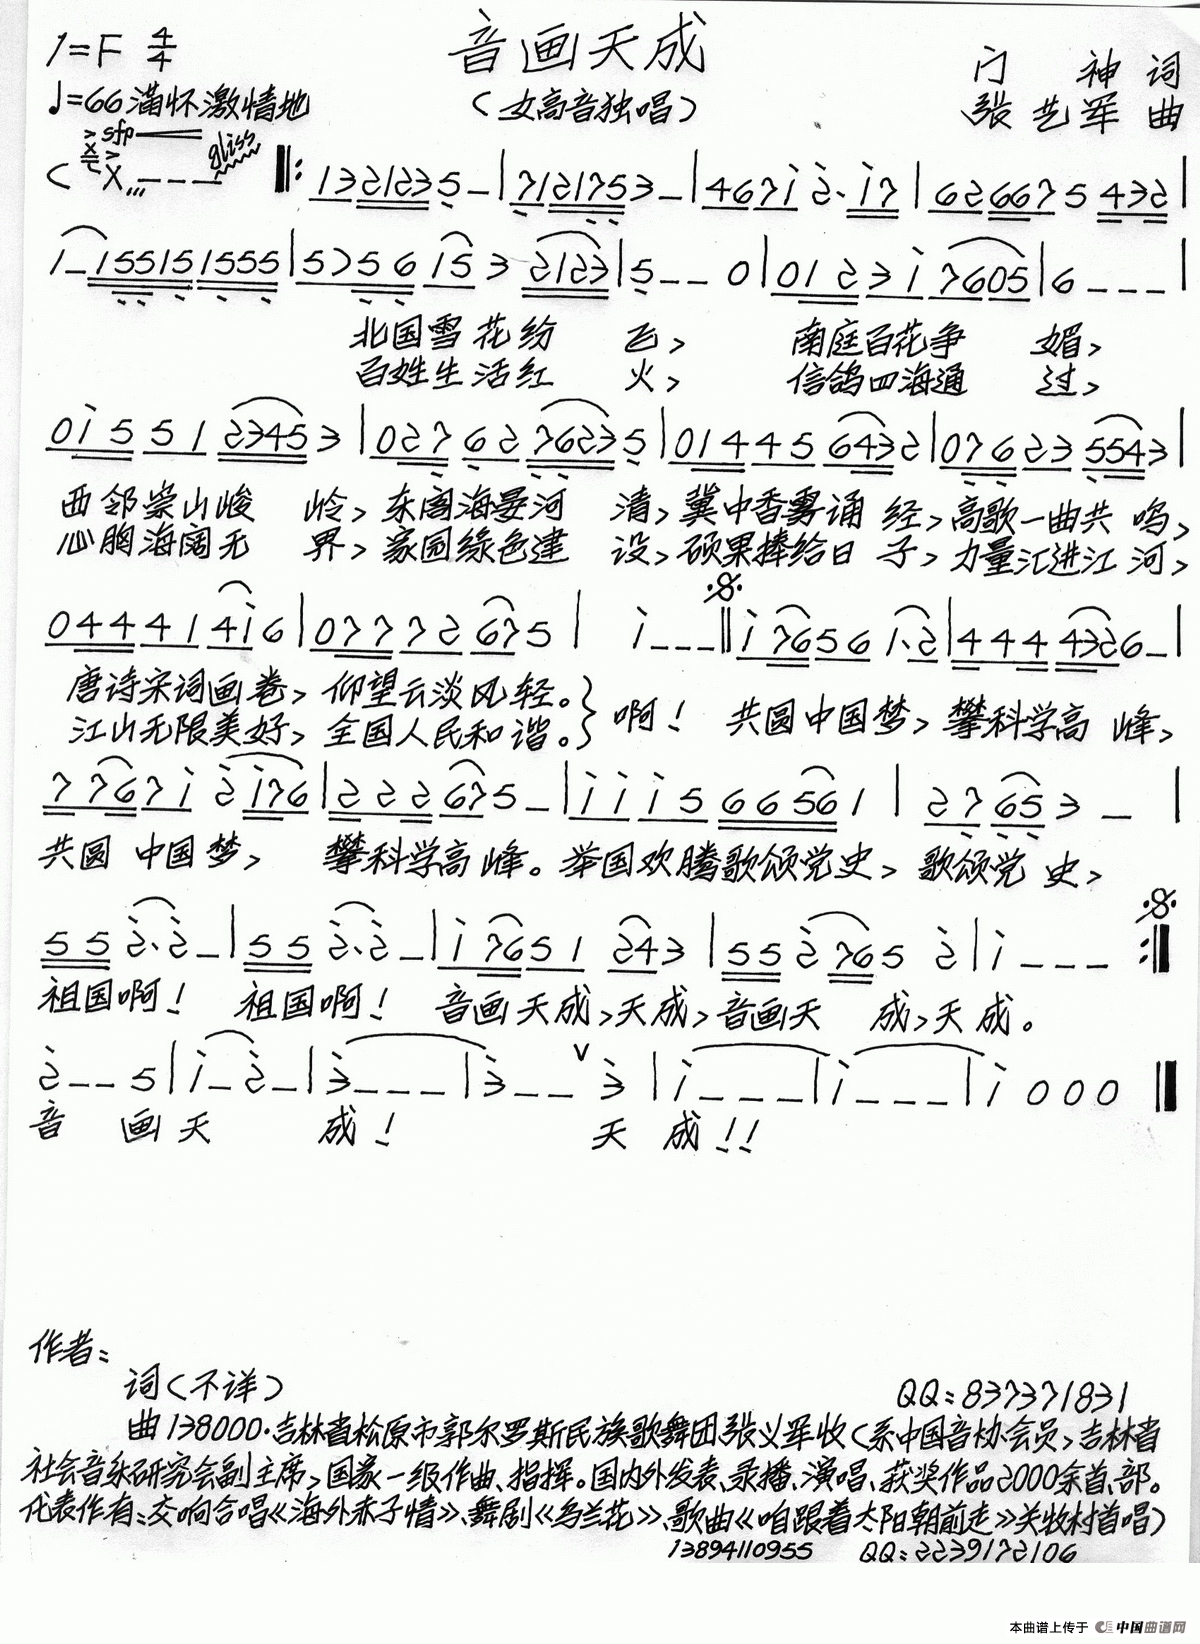 音画天成
1=F 4/4
门神 词
♩=66 满怀激情地
(女高音独唱)
张艺军 曲
sfp gliss
1321235–|71217 53–|4671̇ 2̇·1̇7|626675 432|
1–155151555|5756 15 3 2123|5––0|01231̇ 7605|6–––|
北国雪花纷 飞, 南庭百花争 媚,
百姓生活红 火, 信鸽四海通 过,
01̇5 51 23453|0276276235|014456432|07623 5543|
西邻崇山峻 岭, 东阁海晏河 清, 冀中香雾诵 经, 高歌一曲共 鸣,
心胸海阔无 界, 家园绿色建 设, 硕果捧给日 子, 力量汇进江 河,
0444141̇6|07772675| 1̇–––‖1̇76561·2|4444326–|
唐诗宋词画卷, 仰望云淡风轻。
啊! 共圆中国梦, 攀科学高 峰,
江山无限美好, 全国人民和谐。
77671̇ 2̇1̇76|222675–|1̇1̇1̇566561|27653–|
共圆 中国梦, 攀科学高峰。举国欢腾歌颂党史, 歌颂党 史,
552̇·2̇–|552̇·2̇–|1̇7651 243|552̇765 2̇|1̇–––:‖
祖国啊! 祖国啊! 音画天成,天成,音画天 成,天成。
2̇––5|1̇–2̇–|3̇–––|3̇––∨3̇|1̇–––|1̇–––|1̇000‖
音 画天 成! 天 成!!
作者:
词(不详)
QQ:837371831
曲138000·吉林省松原市郭尔罗斯民族歌舞团张义军收(系中国音协会员,吉林省
社会音乐研究会副主席,国家一级作曲、指挥。国内外发表、录播、演唱、获奖作品2000余首、部。
代表作有:交响合唱《海外赤子情》、舞剧《乌兰花》、歌曲《咱跟着太阳朝前走》关牧村首唱)
13894110955 QQ:2239172106
本曲谱上传于 中国曲谱网